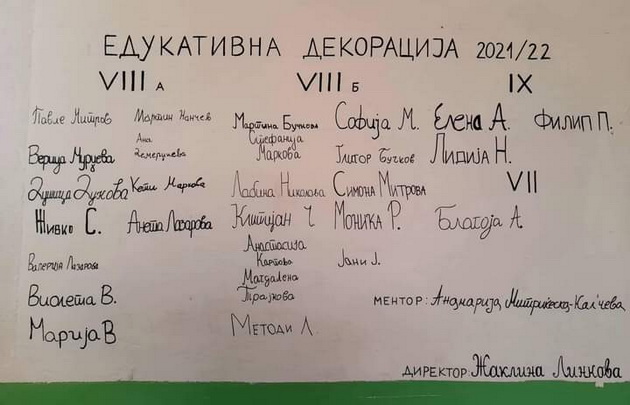 ЕДУКАТИВНА ДЕКОРАЦИЈА 2021/22
VIII А
Павле Митров
Верица Мурџева
Душица Духова
Живко С.
Валерија Лазарова
Виолета В.
Марија В
Мартин Нанчев
Ана
Кети Маркова
Анета Лазарова
VIII Б
Мартина Бучкова
Стефанија
Маркова
Лабина Николова
Кштијан Ч
Анастасија
Картова
Магдалена
Трајкова
Методи Л.
Софија М.
Глигор Бучков
Симона Митрова
Моника Р.
Јани Ј.
IX
Елена А.
Филип П.
Лидија Н.
VII
Благоја А.
МЕНТОР: Анамарија
ДИРЕКТОР: Жаклина Линкова